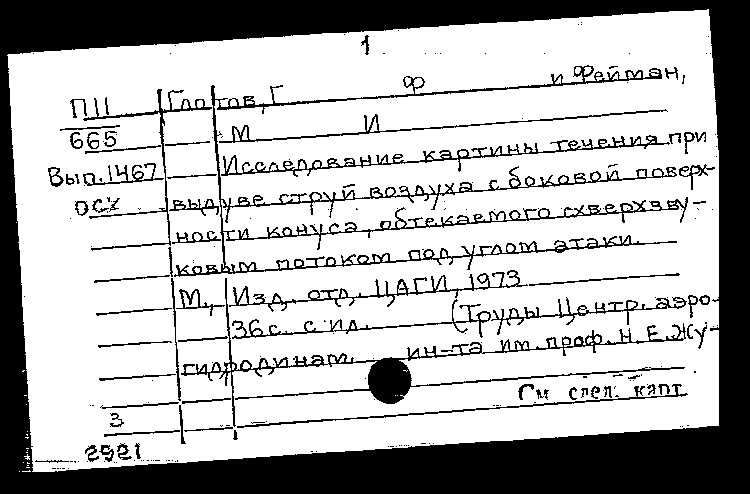 1
П11 Глотов, Г Ф и Фейман,
665 М И
Вып. 1467 Исследование картины течения при
ОСХ выдуве струй воздуха с боковой поверх-
ности конуса, обтекаемого схверхзву-
ковым потоком под углом атаки.
М., Изд. отд. ЦАГИ, 1973
36с. с ил. (Труды Центр. аэро-
гидродинам. ин-та им. проф. Н. Е. Жу-
См след. карт
3
2921